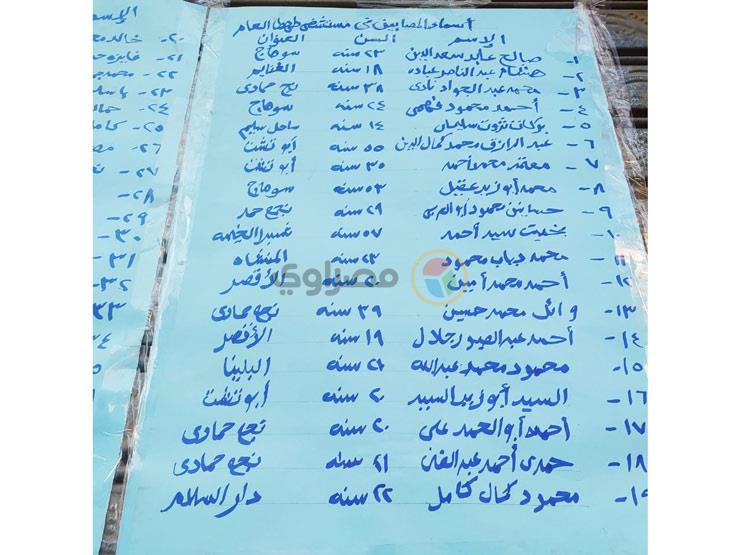 أسماء المصابين في مستشفى طهطا العام
الاسم السن العنوان
١- صالح عابد سعد الدين ٢٣ سنه سوهاج
٢- هشام عبد الناصر عباده ١٨ سنه الغنايم
٣- محمد عبد الجواد نادى ٣٨ سنه نجع حمادى
٤- أحمد محمود فهمى ٢٤ سنه سوهاج
٥- ثروت سليمان ١٤ سنه ساحل سليم
٦- عبد الرازق محمد كمال الدين ٥٥ سنه أبو تشت
٧- معتمد محمد أحمد ٣٥ سنه أبو تشت
٨- محمد أبو زيد عقيل ٥٣ سنه سوهاج
٩- حسانين محمود ٢٩ سنه نجع حمد
١٠- بخيت سيد أحمد ٥٧ سنه شبرا الخيمه
١١- محمد دياب محمود ٢٣ سنه المنشاه
١٢- أحمد محمد أمين سنه الأقصر
مصراوي
١٣- وائل محمد حسين ٣٩ سنه نجع حمادى
١٤- أحمد عبد الصبور جلال ١٩ سنه الأقصر
١٥- محمود محمد عبد الله ٢٨ سنه البلينا
١٦- السيد أبو زيد السيد ٢٠ سنه أبو تشت
١٧- أحمد أبو الحمد على ٢٠ سنه نجع حمادى
١٨- حمدى أحمد عبد الغنى ٢١ سنه نجع حمادى
١٩- محمود كمال كامل ٢٢ سنه دار السلام
٢٠- خالد
٢١- فايزه
٢٢- محمد
٢٣-
٢٤-
٢٥-
٢٦-
٢٧-
٢٨-
٢٩-
٣٠-
٣١-
٣٢-
٣٣